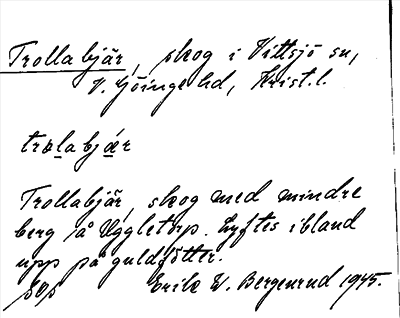 Trollabjär, skog i Vittsjö sn,
V. Göinge hd, Krist. l.
trolabjær
Trollabjär, skog med mindre
berg å Uggletorp. Lyftes ibland
upp på guldfötter.
Erik W. Bergenrud 1945.